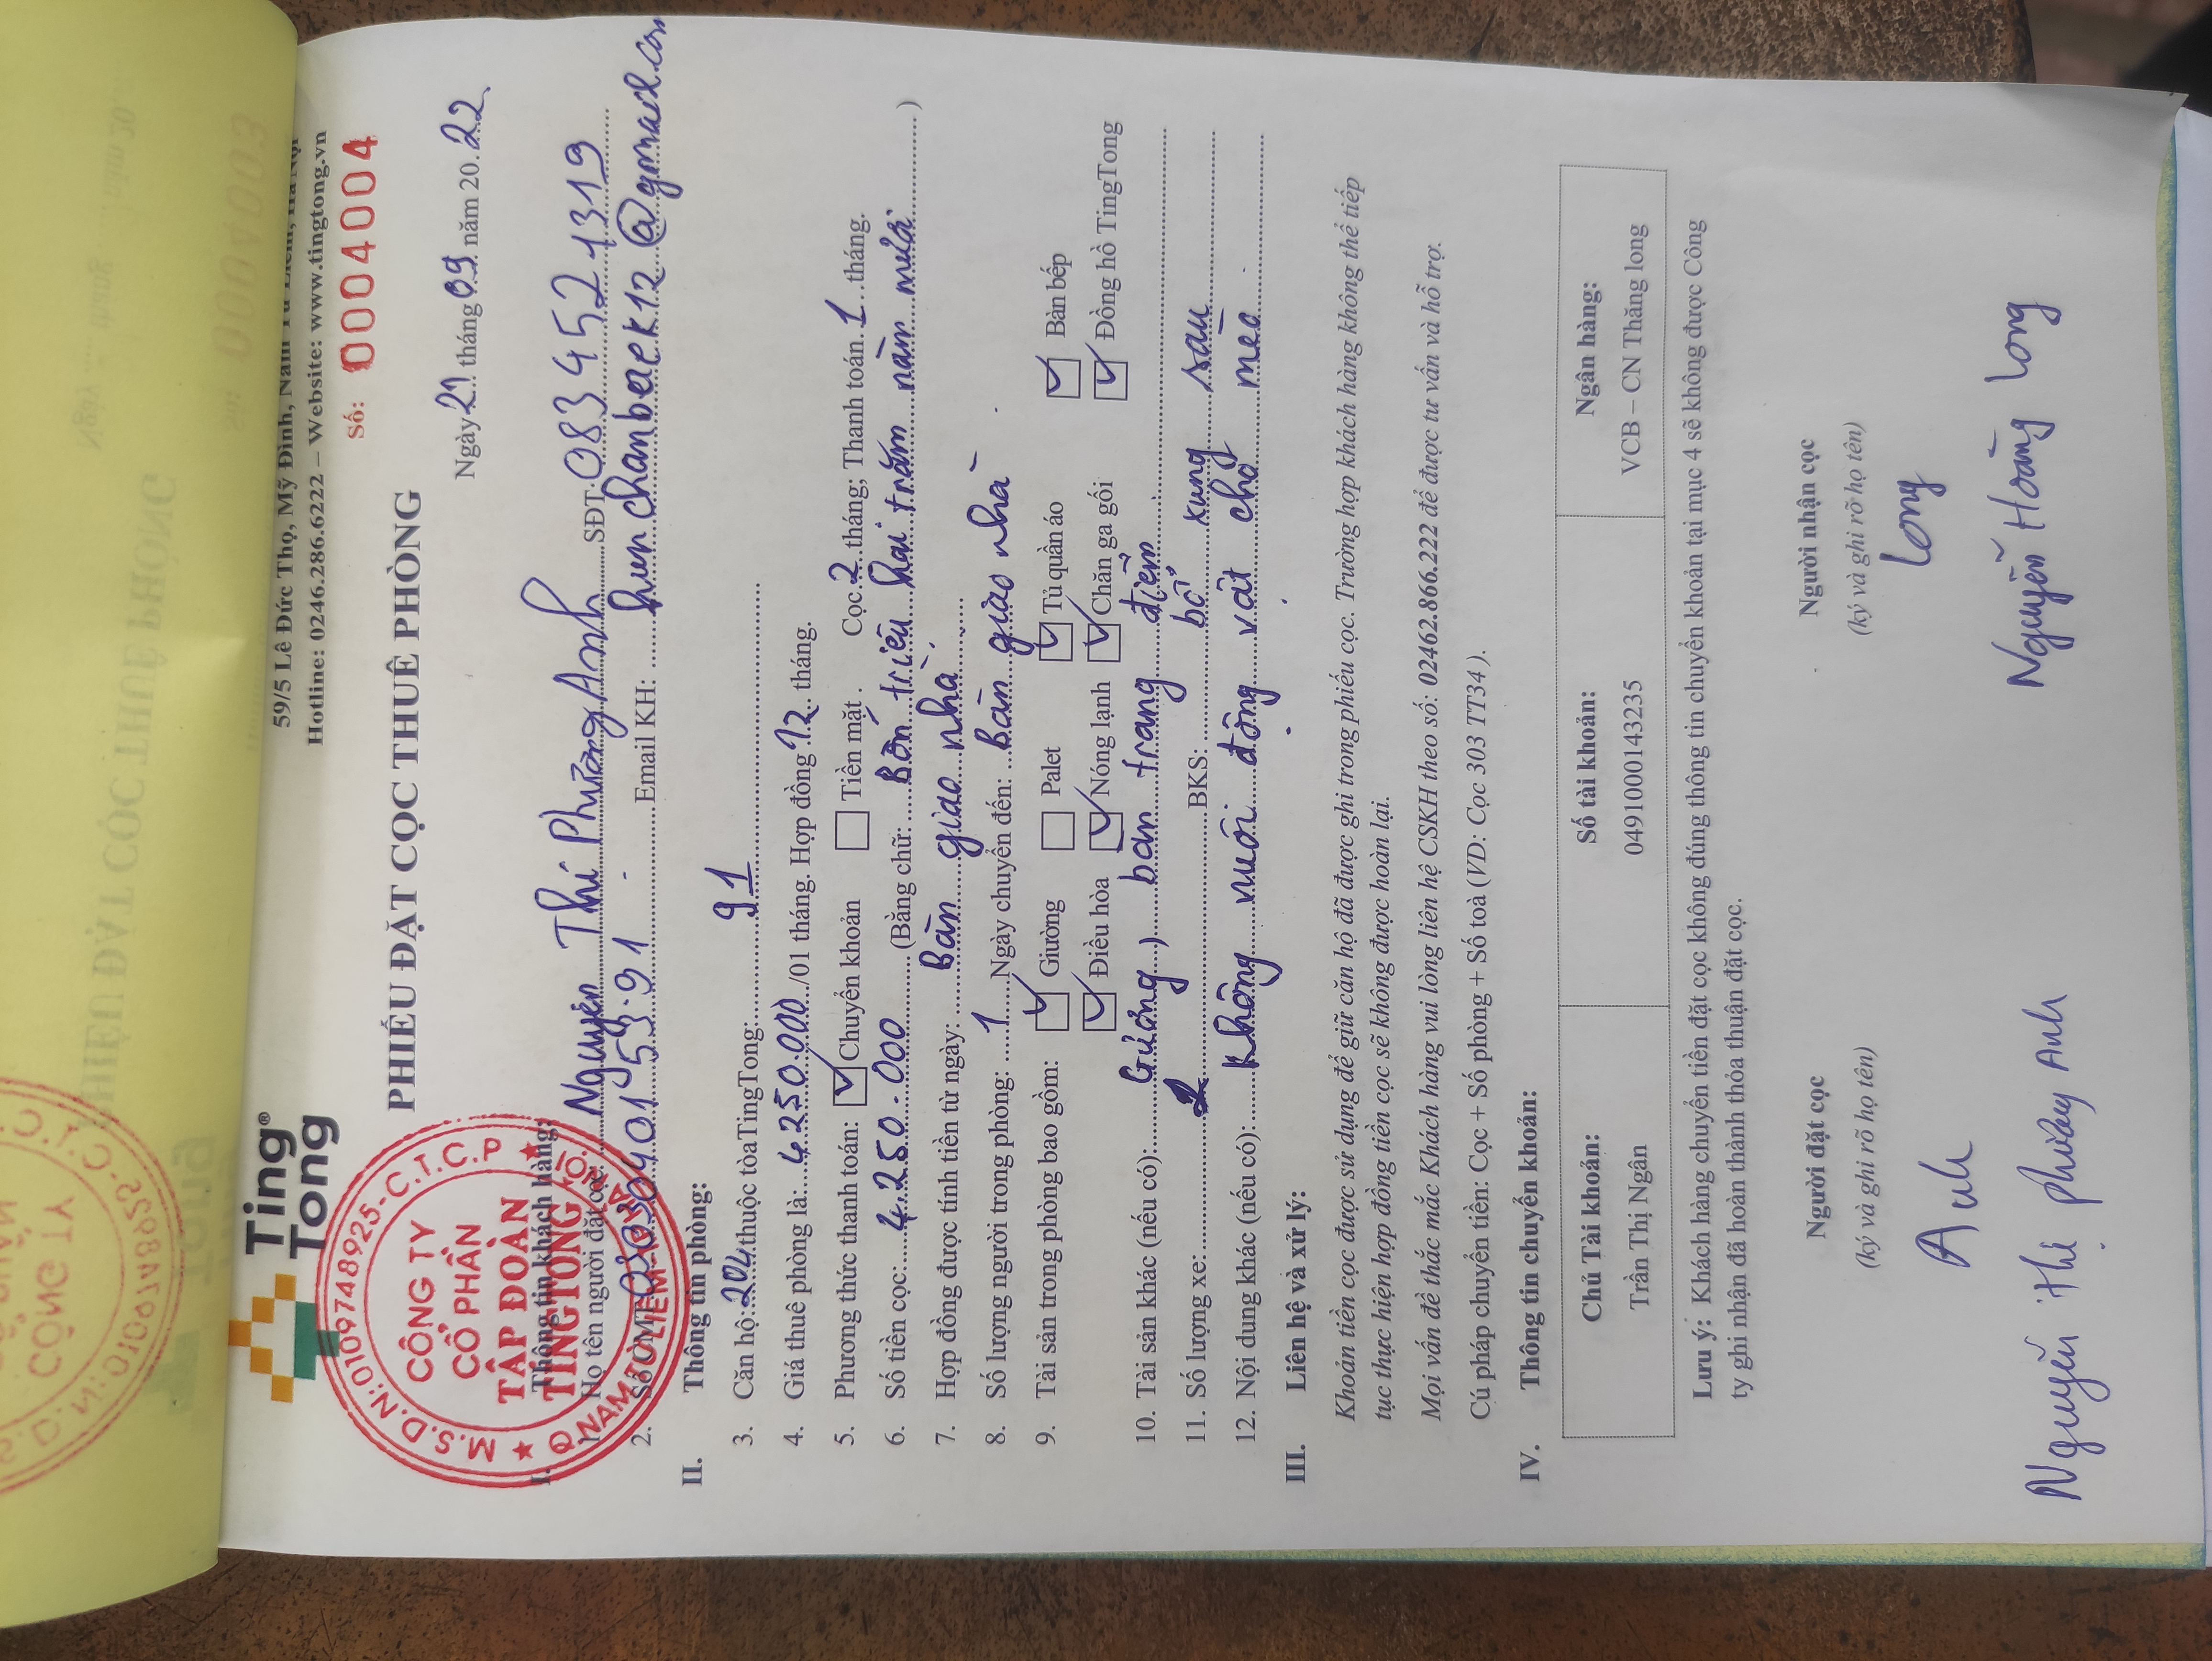 Ting
Tong
59/5 Lê Đức Thọ, Mỹ Đình, Nam Từ Liêm, Hà Nội
Hotline: 0246.286.6222 – Website: www.tingtong.vn
Số: 0004004
PHIẾU ĐẶT CỌC THUÊ PHÒNG
Ngày 21 tháng 09 năm 20.22.
M.S.D.N:0109748925-C.T.C.P
CÔNG TY
CỔ PHẦN
TẬP ĐOÀN
TINGTONG
Q.NAM TỪ LIÊM
I. Thông tin khách hàng:
1. Họ tên người đặt cọc: Nguyễn Thị Phương Anh SĐT: 083 452 1319
2. Số CMT: Email KH: hunchanbaek12@gmail.com
II. Thông tin phòng:
3. Căn hộ: 204 thuộc tòa TingTong: 91
4. Giá thuê phòng là: 4.250.000 /01 tháng. Hợp đồng 12 tháng.
5. Phương thức thanh toán: Chuyển khoản Tiền mặt. Cọc 2 tháng; Thanh toán 1 tháng.
6. Số tiền cọc: 4.250.000 (Bằng chữ: Bốn triệu hai trăm năm mươi )
7. Hợp đồng được tính tiền từ ngày: Bàn giao nhà
8. Số lượng người trong phòng: 1 Ngày chuyển đến: Bàn giao nhà
9. Tài sản trong phòng bao gồm: Giường Palet Tủ quần áo Bàn bếp
Điều hòa Nóng lạnh Chăn ga gối Đồng hồ TingTong
10. Tài sản khác (nếu có): Gương, bàn trang điểm
11. Số lượng xe: BKS: bổ xung sau
12. Nội dung khác (nếu có): Không nuôi động vật chó mèo.
III. Liên hệ và xử lý:
Khoản tiền cọc được sử dụng để giữ căn hộ đã được ghi trong phiếu cọc. Trường hợp khách hàng không thể tiếp
tục thực hiện hợp đồng tiền cọc sẽ không được hoàn lại.
Mọi vấn đề thắc mắc Khách hàng vui lòng liên hệ CSKH theo số: 02462.866.222 để được tư vấn và hỗ trợ.
Cú pháp chuyển tiền: Cọc + Số phòng + Số toà (VD: Cọc 303 TT34).
IV. Thông tin chuyển khoản:
Chủ Tài khoản: Số tài khoản: Ngân hàng:
Trần Thị Ngân 0491000143235 VCB – CN Thăng long
Lưu ý: Khách hàng chuyển tiền đặt cọc không đúng thông tin chuyển khoản tại mục 4 sẽ không được Công
ty ghi nhận đã hoàn thành thỏa thuận đặt cọc.
Người đặt cọc Người nhận cọc
(ký và ghi rõ họ tên) (ký và ghi rõ họ tên)
Anh Long
Nguyễn Thị Phương Anh Nguyễn Hoàng Long